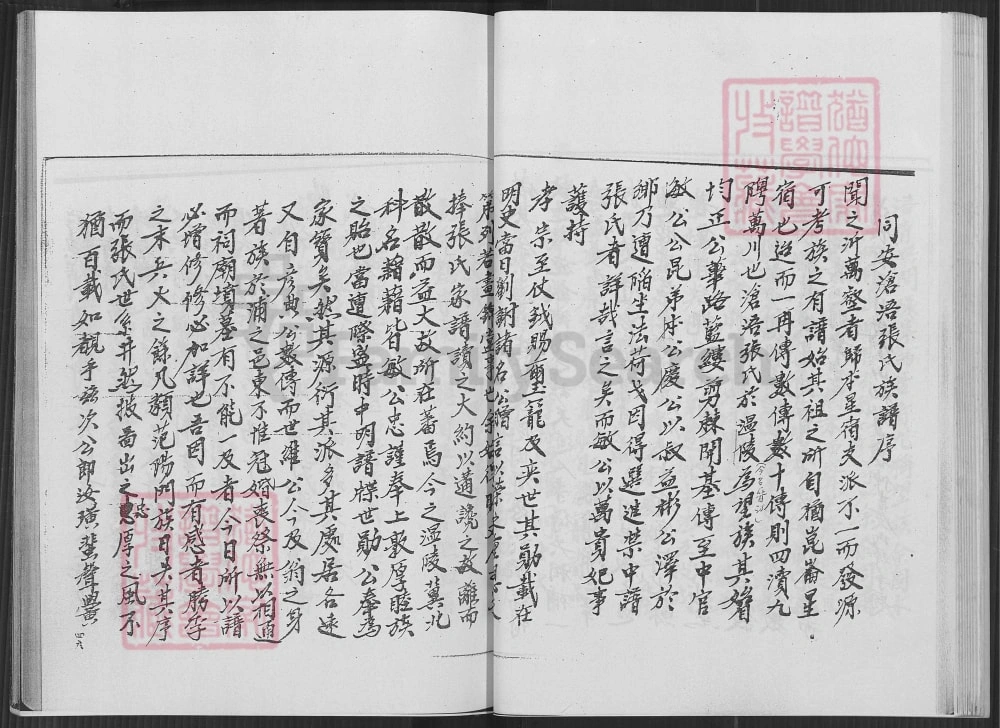 同安滄浯張氏族譜序
聞之沂萬壑者歸本星宿支派不一而發源
可考族之有譜始其祖之所自猶崑崙星
宿也迨而一再傳數傳數十傳則四瀆九
聘萬川也滄浯張氏於溫陵為望族其始
均正公篳路藍縷剪棘開基傳至中官
敏公公昆弟本公慶公以叔益彬公澤於
鄉乃遭陷坐法荷戈因得選進禁中譜
張氏者詳哉言之矣而敏公以萬貴妃事
護持
孝崇至仗鉞賜璽寵及奕世其勛載在
明史當日劉謝諸名公
捧張氏家譜讀之大約以適讒之故離而
散散而益大故所在蕃焉今之溫陵冀北
科名籍籍皆敏公忠謹奉上敦厚睦族
之貽也當遭際盛時中明譜牒世勛公奉為
家寶矣然其源衍其派多其處居各遠
又自彥典公數傳而世雄公今及翁之身
著族於浦之邑東不惟冠婚喪祭無以相通
而祠廟墳墓有不能一及者今日所以譜
必增修修必加詳也吾因而有感者勝
之末兵火之餘凡穎范陽門族日失其序
而張氏世系井然披圖出之忠厚之風不
猶百載如觀乎
四九
FamilySearch